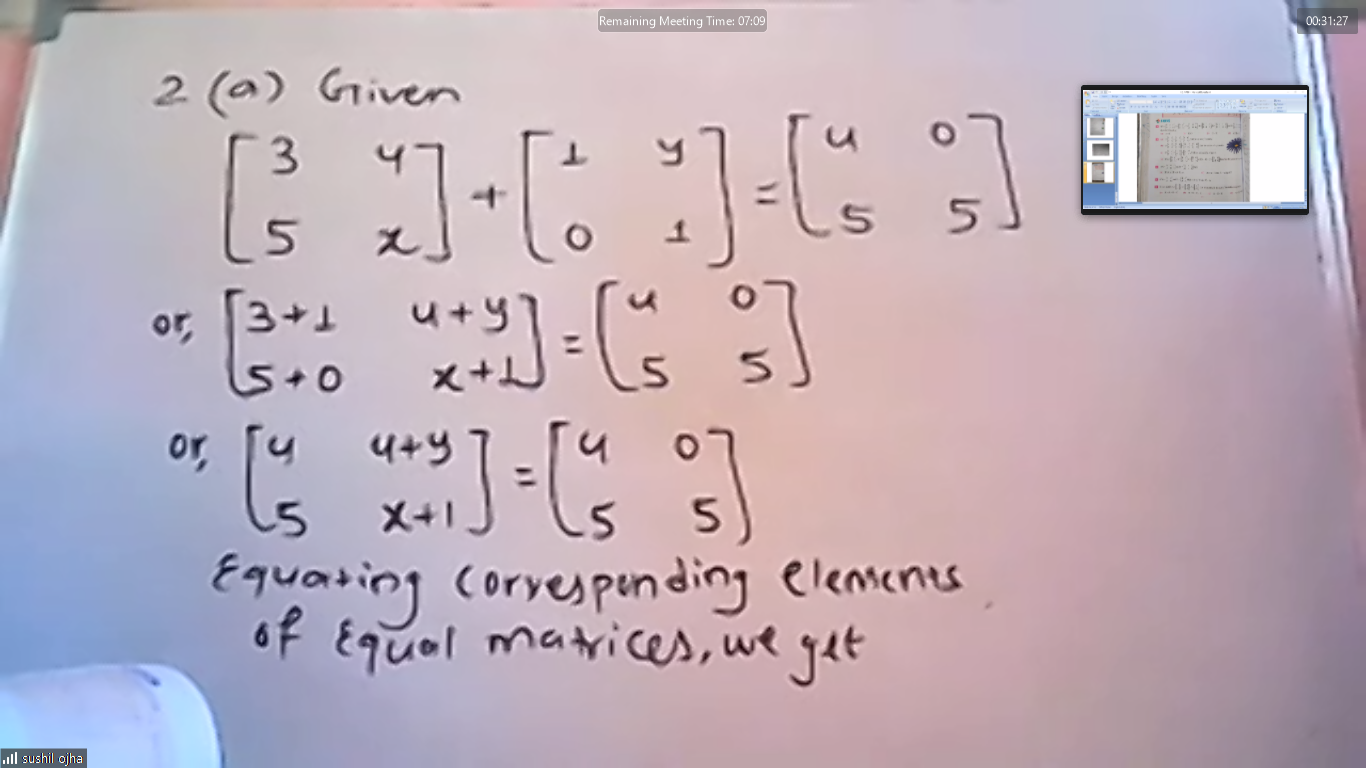 Remaining Meeting Time: 07:09
00:31:27
2 (a) Given
[3 4
5 x] + [1 y
0 1] = [4 0
5 5]
or, [3+1 4+y
5+0 x+1] = [4 0
5 5]
or, [4 4+y
5 x+1] = [4 0
5 5]
Equating corresponding elements
of Equal matrices, we get
sushil ojha